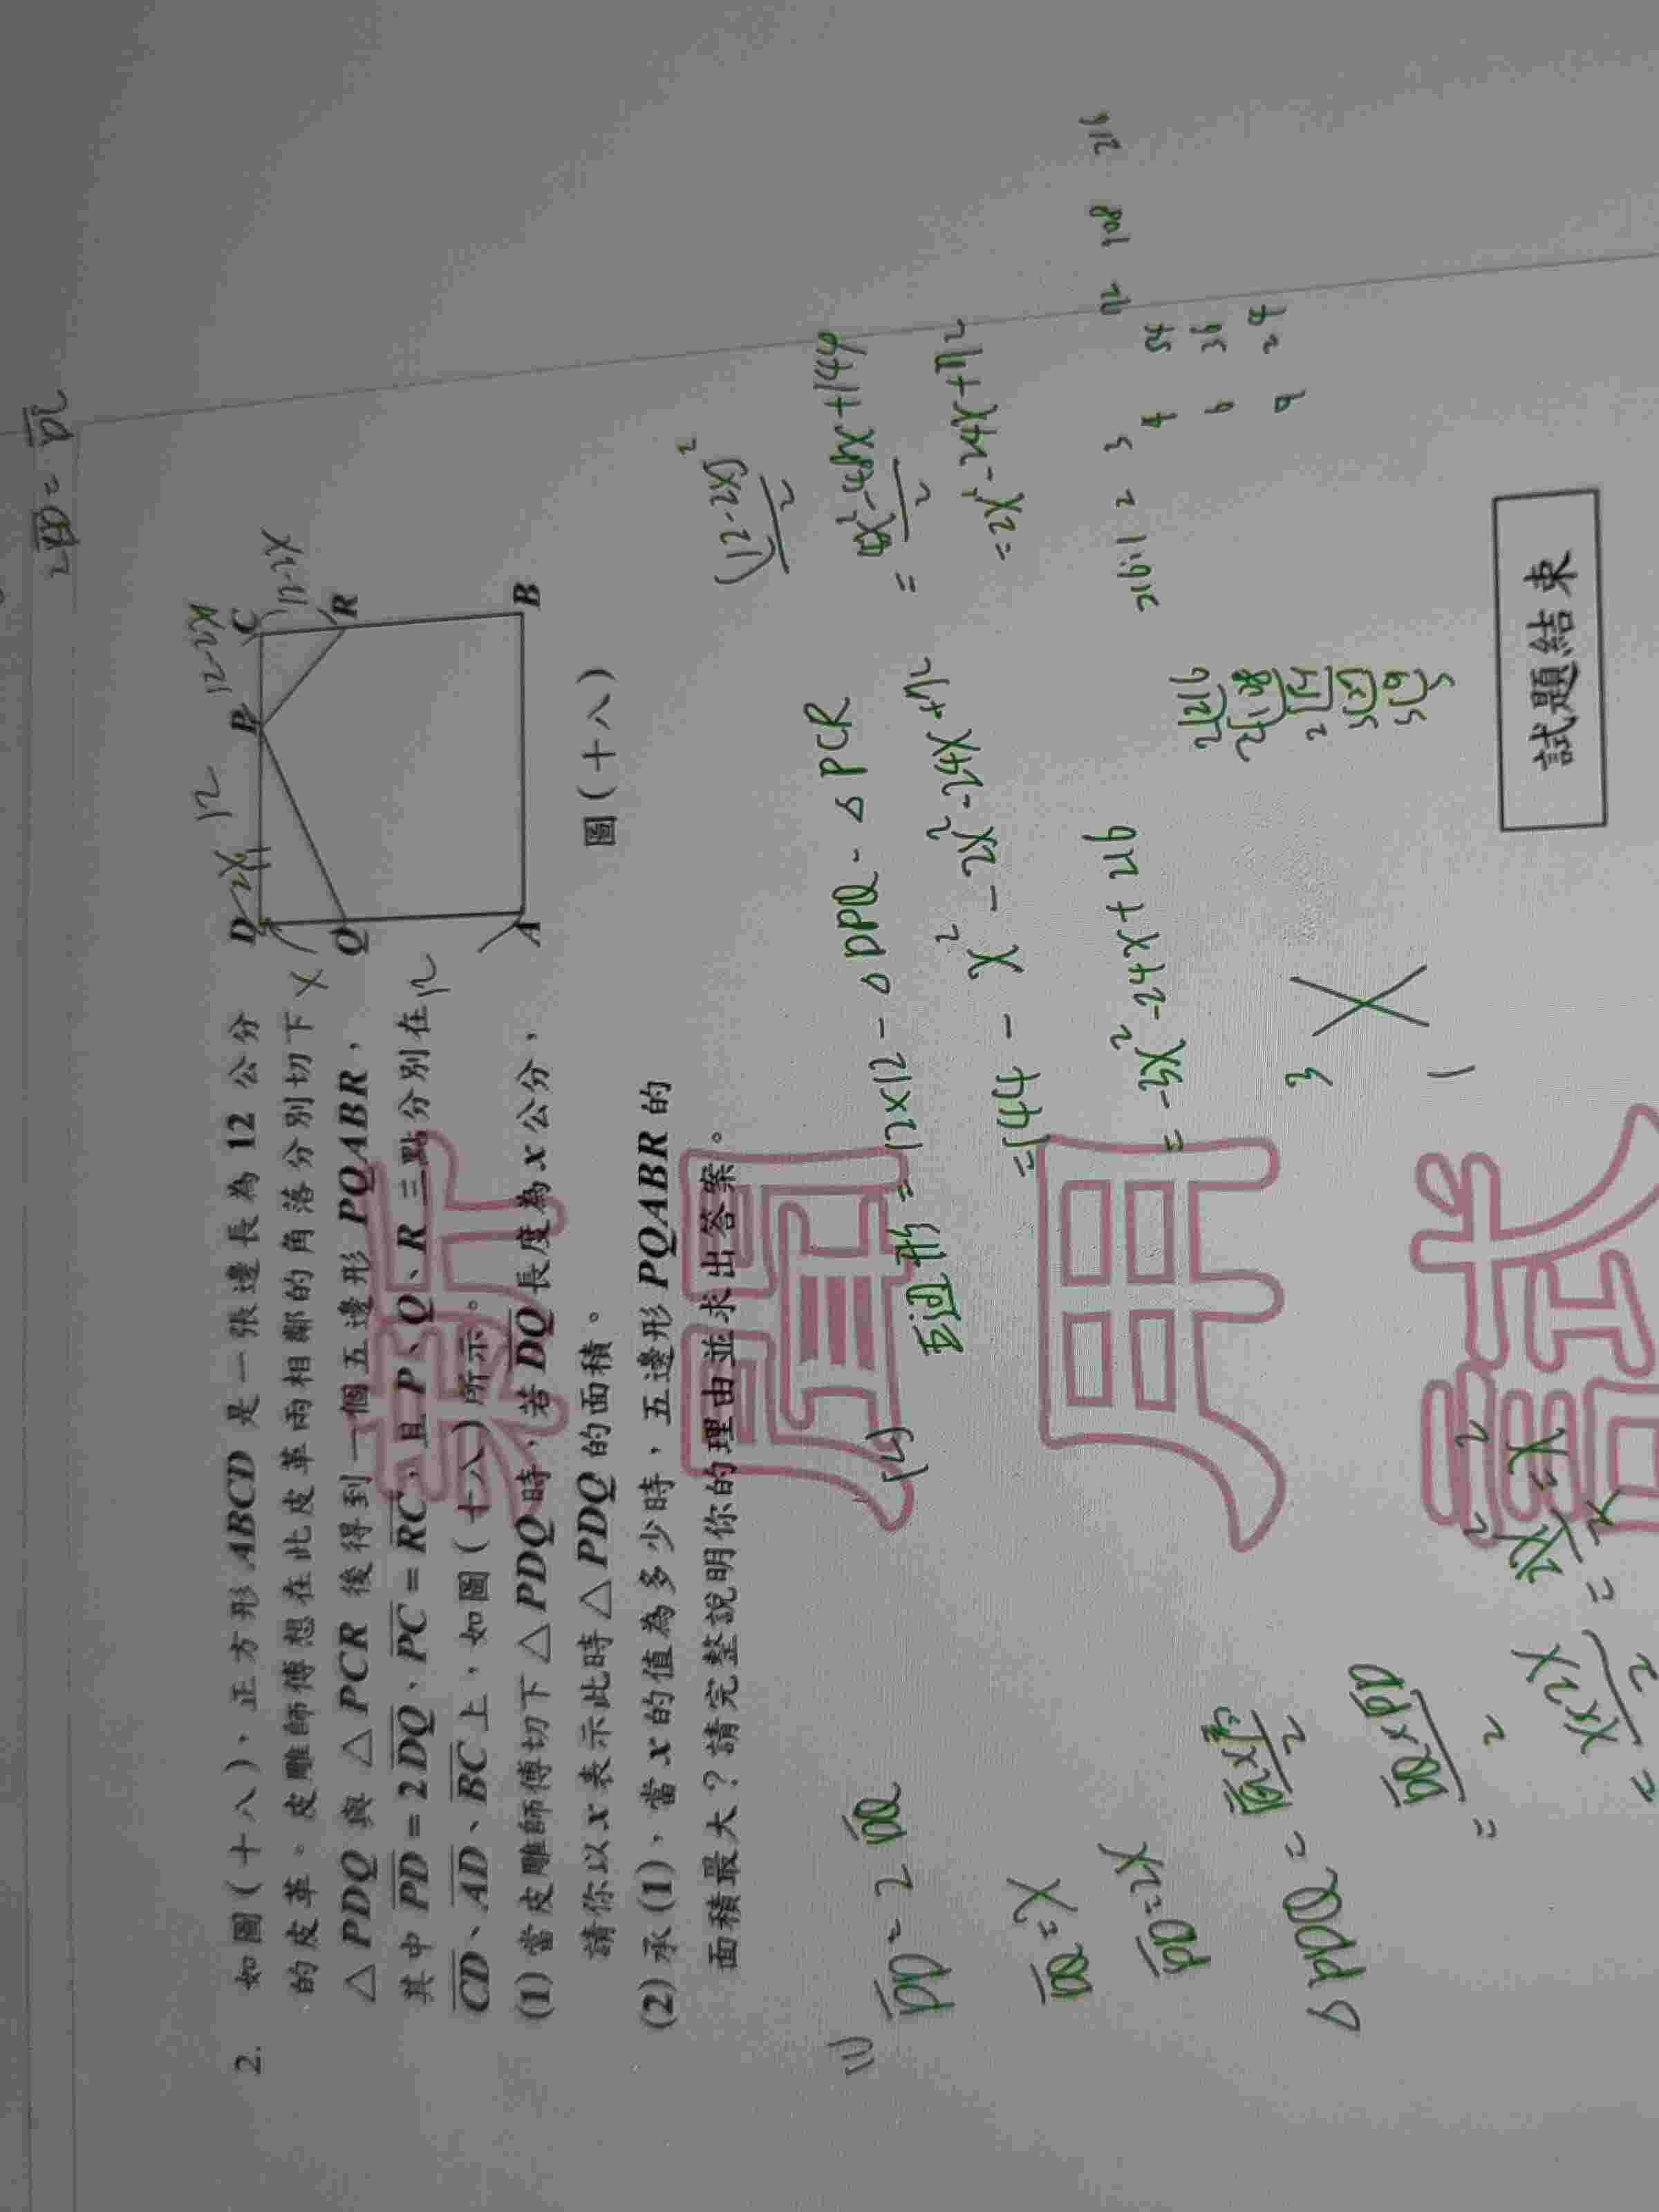 2PD = DQ
2. 如圖(十八),正方形 ABCD 是一張邊長為 12 公分
的皮革。皮雕師傅想在此皮革兩相鄰的角落分別切下
△PDQ 與 △PCR 後得到一個五邊形 PQABR,
其中 PD = 2DQ、PC = RC,且 P、Q、R 三點分別在
CD、AD、BC 上,如圖(十八)所示。
(1) 當皮雕師傅切下 △PDQ 時,若 DQ 長度為 x 公分,
請你以 x 表示此時 △PDQ 的面積。
(2) 承(1),當 x 的值為多少時,五邊形 PQABR 的
面積最大?請完整說明你的理由並求出答案。
12
D 2X P 12-2X C
X 12-2X
Q R
12
A B
圖(十八)
(1)
PD = 2DQ
DQ = X
PD = 2X
△PDQ =
= DQ×PD / 2
= X×2X / 2 = 2X² / 2 = X²
(2)
五邊形 = 12×12 - △DPQ - △PCR
= 144 - X² - 2X² - 24X + 72
= -3X² - 24X + 216
3
1
(12-2X)² / 2
= 4X² - 48X + 144 / 2
= 2X² - 24X + 72
216: 1 2 3
72 108 216
2 216
2 108
2 54
試題結束